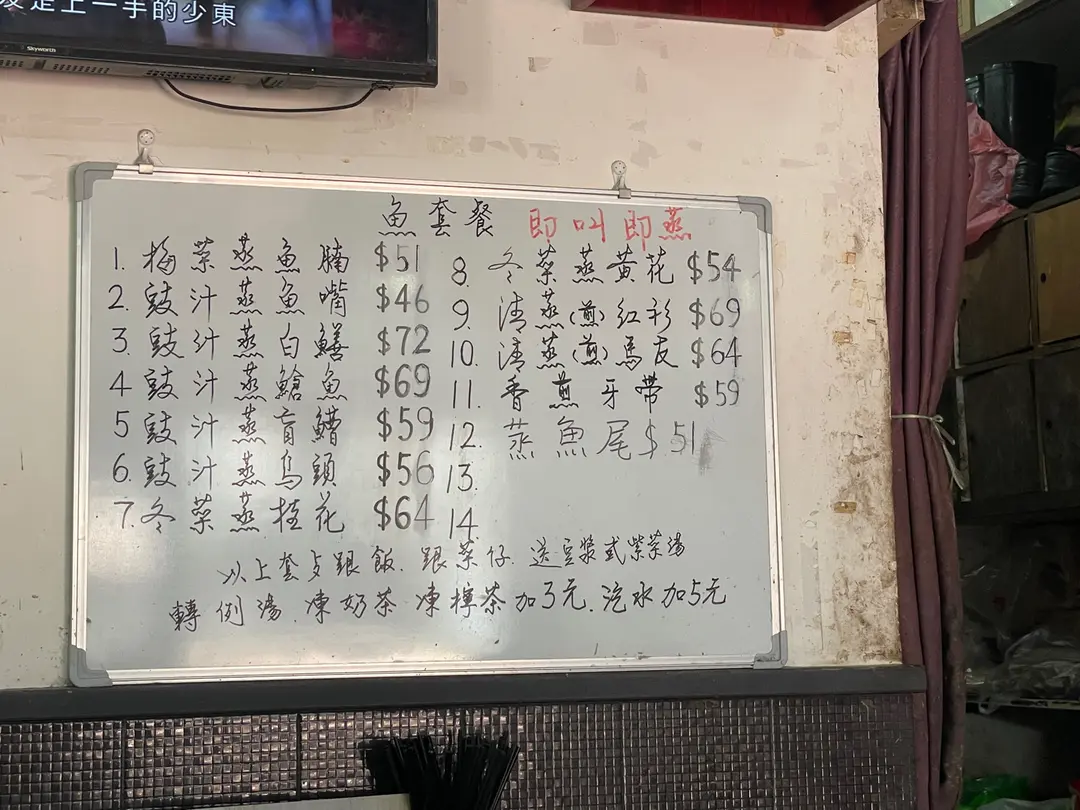 走上一手的少東
Skyworth
魚套餐 即叫即蒸
1. 梅菜蒸魚腩 $51
2. 豉汁蒸魚嘴 $46
3. 豉汁蒸白鱔 $72
4 豉汁蒸鯧魚 $69
5 豉汁蒸盲鰽 $59
6. 豉汁蒸烏頭 $56
7. 冬菜蒸桂花 $64
8. 冬菜蒸黃花 $54
9. 清蒸(煎)红衫 $69
10. 清蒸(煎)馬友 $64
11. 香煎牙帶 $59
12. 蒸魚尾 $51
13.
14.
以上套歺跟飯. 跟菜仔. 送豆漿或紫菜湯
轉例湯. 凍奶茶 凍檸茶加3元. 汽水加5元